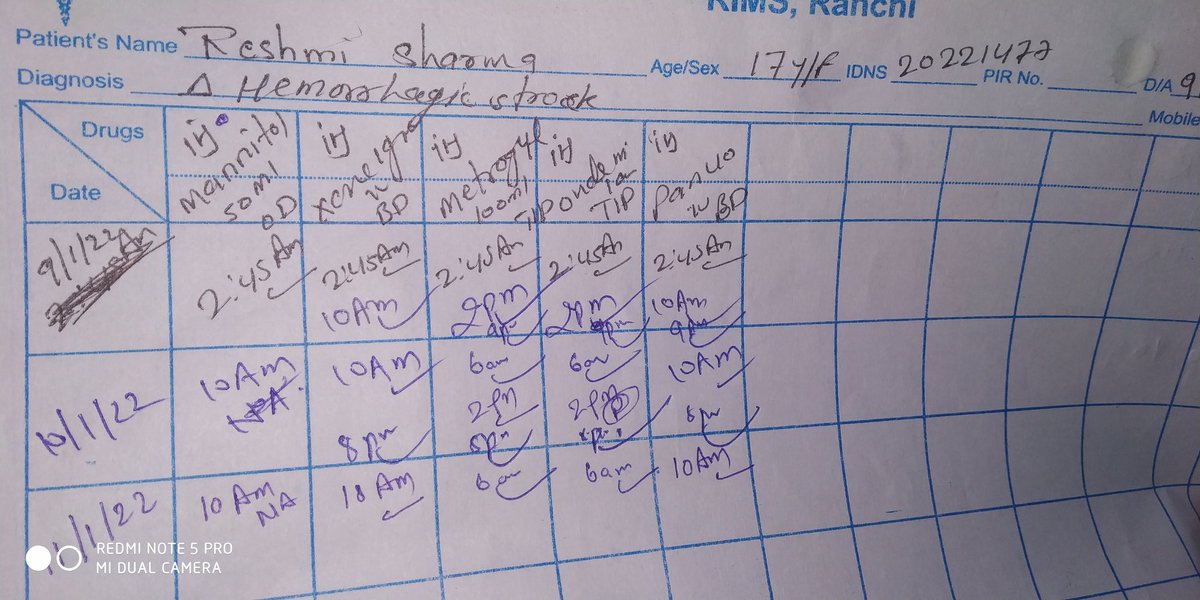 RIMS, Ranchi
Patient's Name Reshmi Sharma Age/Sex 17y/F IDNS 20221477 PIR No. D/A 9
Diagnosis Δ Hemorrhagic strock Mobile
Drugs
Date
inj Mannitol 50ml OD
inj BD
inj Metrogyl 100ml TID
inj TID
inj Pan 40 BD
9/1/22
2:45 Am 2:45 Am 2:45 Am 2:45 Am 2:45 Am
10 Am 2pm 2pm 10 Am
9pm 9pm 9pm
10/1/22
10 Am 10 Am 6am 6am 10 Am
2pm 2pm
8pm 8pm 8pm 8pm
11/1/22
10 Am NA 10 Am 6am 6am 10 Am
REDMI NOTE 5 PRO
MI DUAL CAMERA